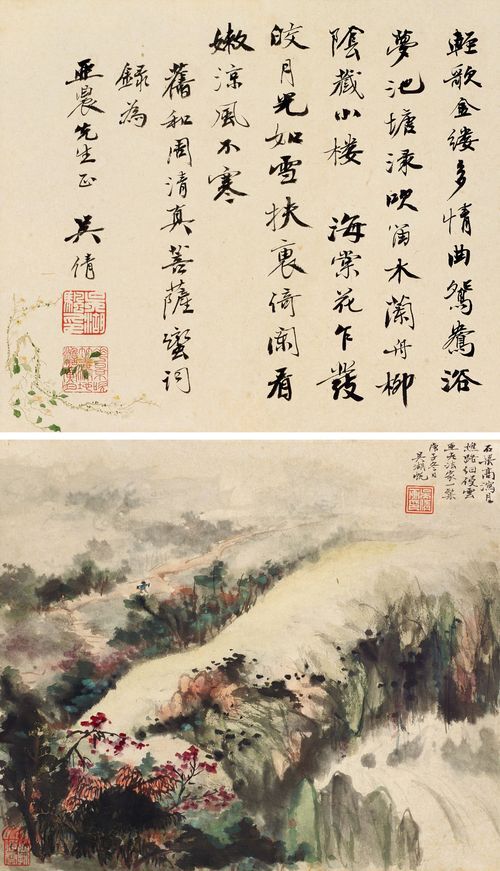 輕歌金縷多情曲鴛鴦浴
夢池塘淥吹笛木蘭舟柳
陰藏小樓 海棠花乍發
皎月光如雪扶裏倚闌看
嫩涼風不寒
舊和周清真菩薩蠻詞
錄為
亞農先生正 吳倩
石溪高瀉月
樵路細侵雲
亞農法家一粲
庚子冬日
吳湖帆